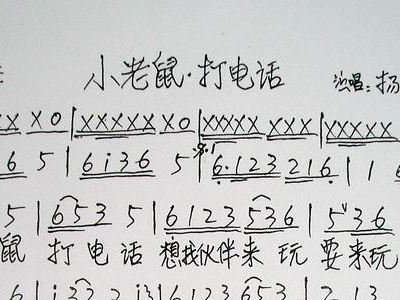 小老鼠·打电话
演唱:扬
XX XO|XXXXX XO|XXXXX XXX|XXXXX
6 5|6i36 5|6·123 216|1 6
5|653 5|6123 536|5 36
鼠 打电话 想找伙伴来 玩 要来玩